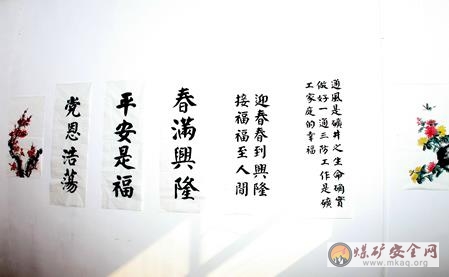 通風是礦井之生命确實
做好一通三防工作是礦
工家庭的幸福
迎春春到興隆
接福福至人間
春滿興隆
平安是福
党恩浩蕩
煤矿安全网
www.mkaq.org